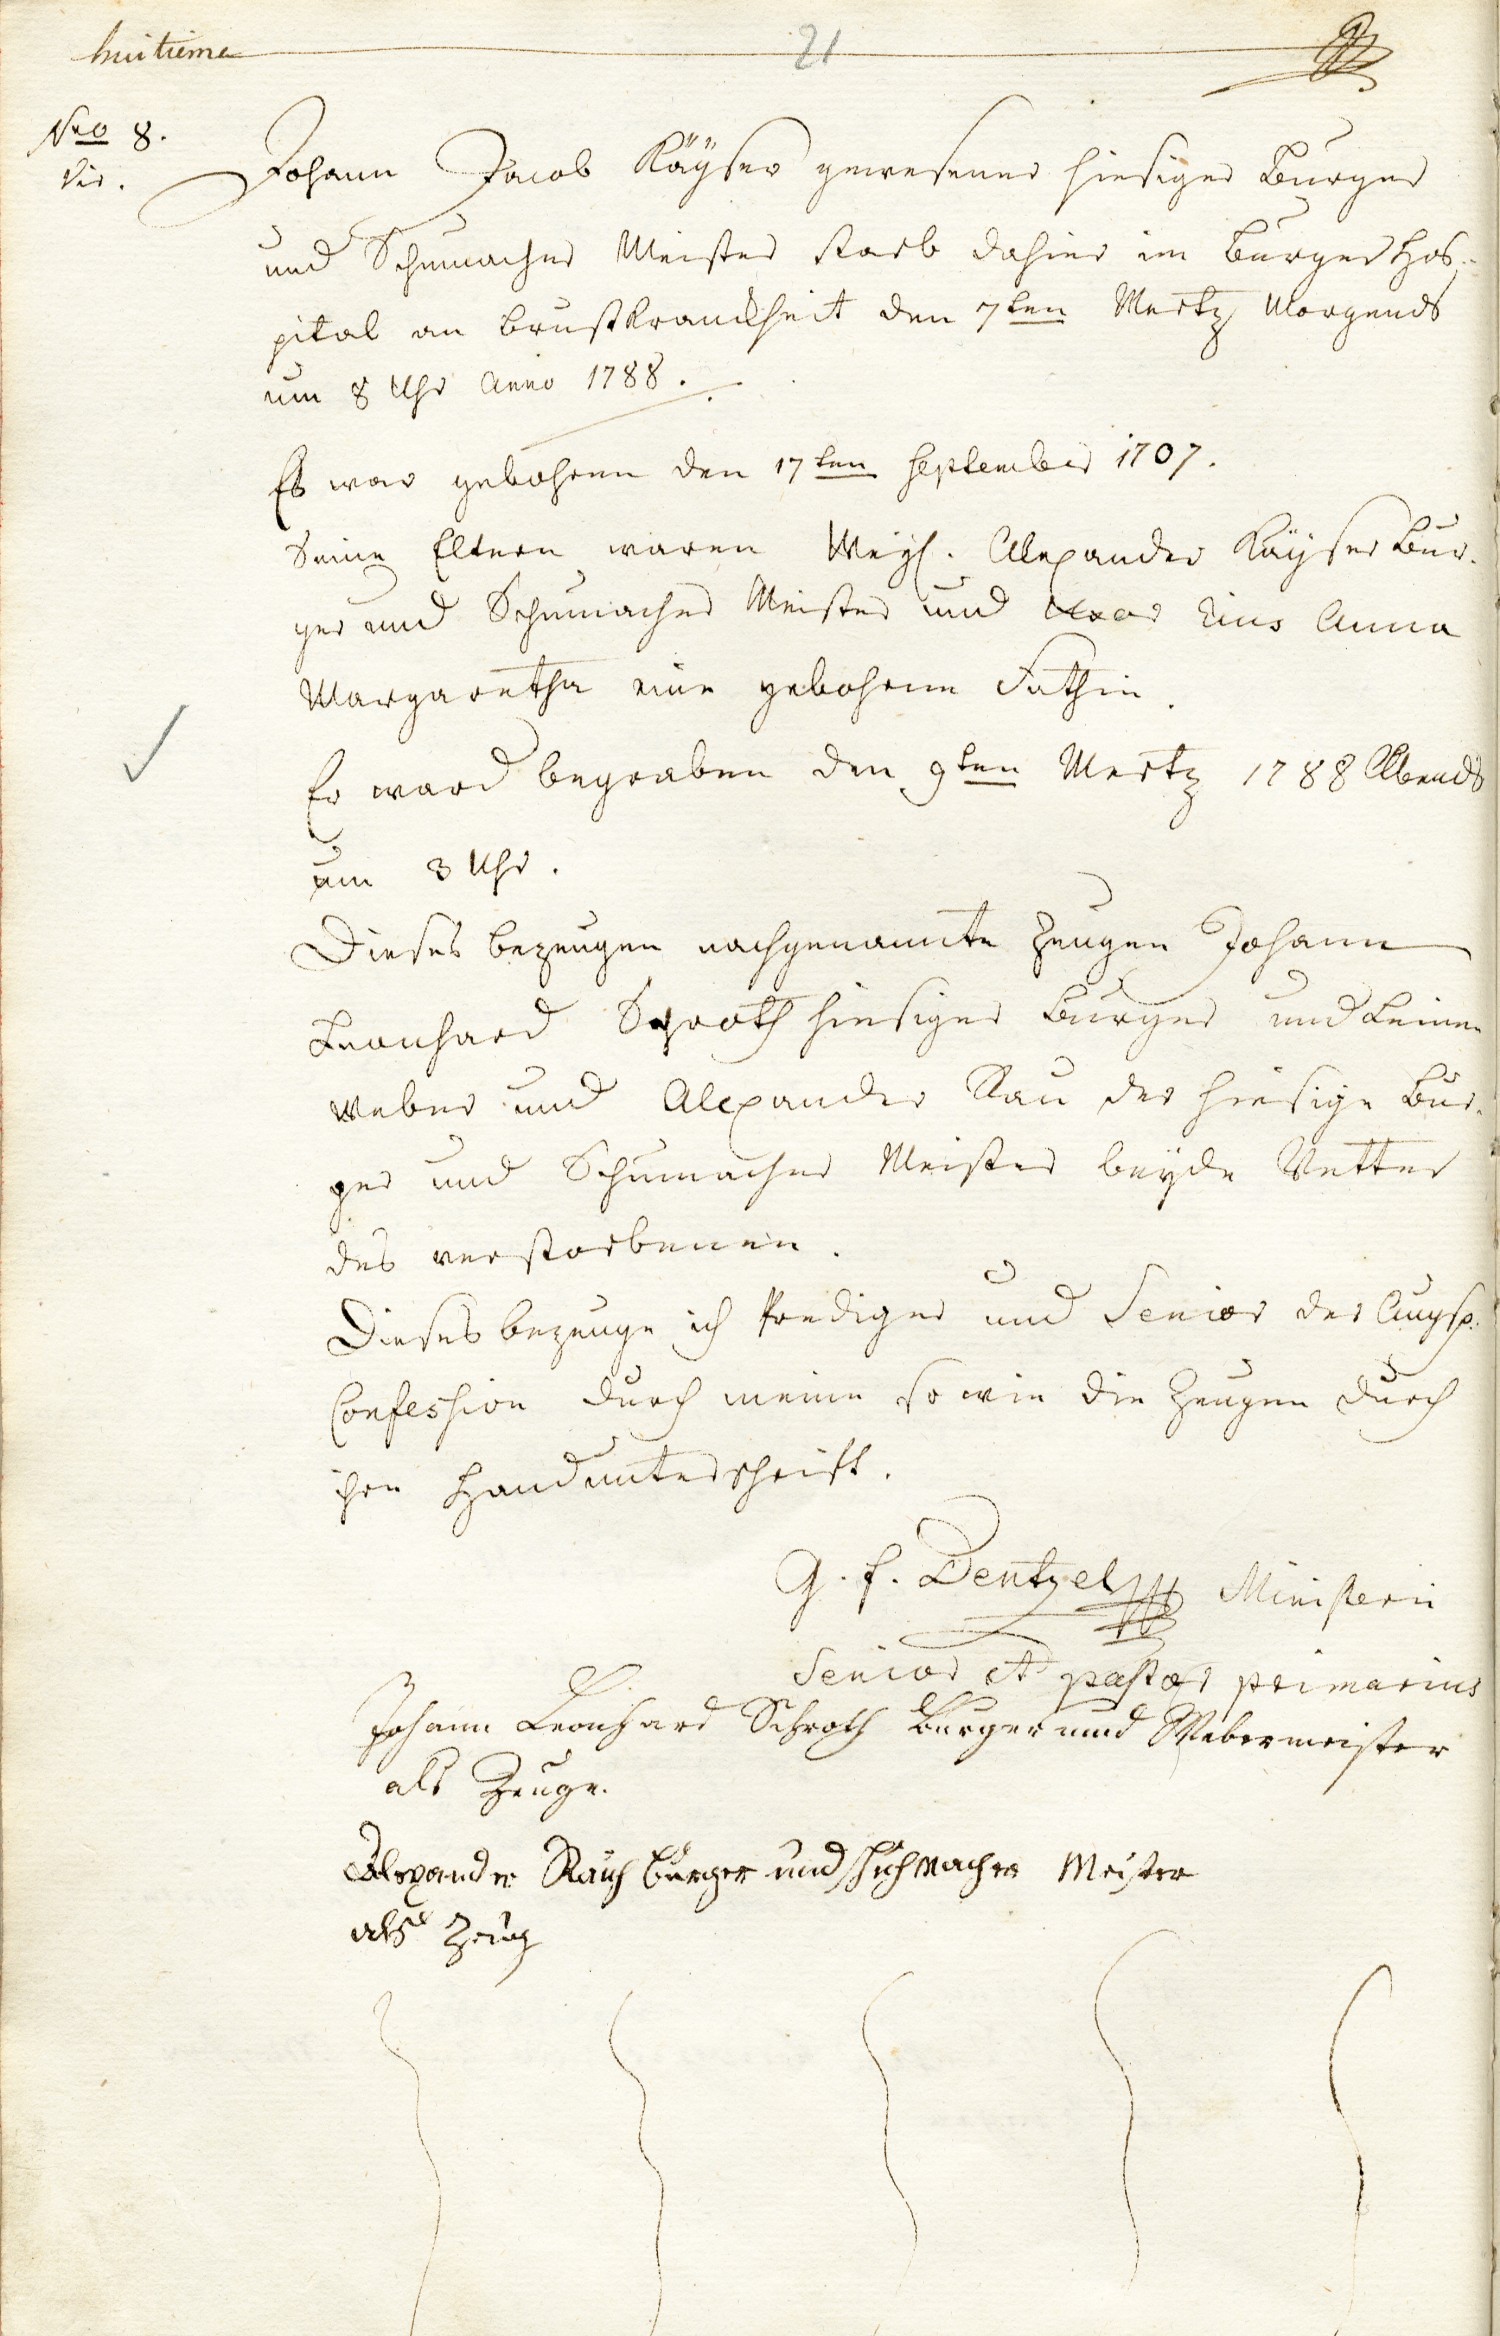 huitieme 21
Nro 8.
Johann Jacob Käÿser gewesener hiesiger Burger
und Schumacher Meister starb dahier im Burger Hos-
pital an Brustkranckheit den 7ten Mertz Morgends
um 8 Uhr Anno 1788.
Er war gebohren den 17ten September 1707.
Seine Eltern waren Weyl. Alexander Käÿser Bur-
ger und Schumacher Meister und Uxor Eius Anna
Margaretha eine gebohrne Fathin.
Er ward begraben den 9ten Mertz 1788 Abends
um 3 Uhr.
Dieses bezeugen nachgenannte Zeugen Johann
Leonhard Schroth hiesiger Burger und Leinen
weber und Alexander Rau der hiesige Bur-
ger und Schumacher Meister beÿde Vetter
des verstorbenen.
Dieses bezeuge ich Prediger und Senior der Augsp.
Confession durch meine so wie die Zeugen durch
ihre Handunterschrift.
G. f. Dentzel Ministerii
Senior et pastor primarius
Johann Leonhard Schroth Burger und Webermeister
als Zeuge.
Alexander Rauh burger und schuhmacher Meister
als Zeug